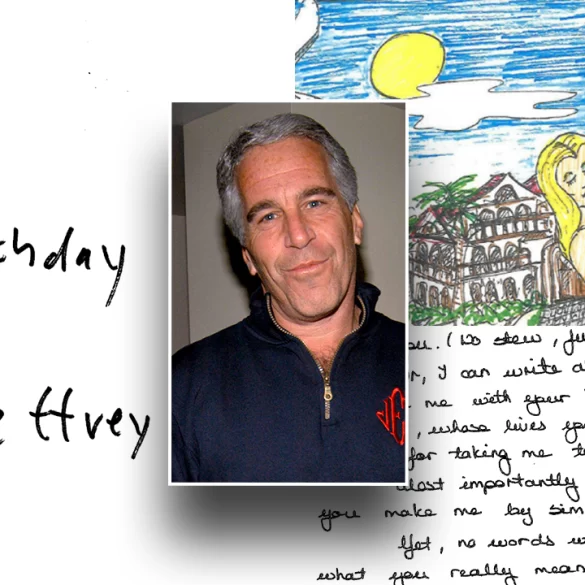 thday
effrey
JE
ou. (No stew, ju
r, I can write a
me with your
, whose lives yo
for taking me t
Most importantly
you make me by sim
Yet, no words w
what you really mean